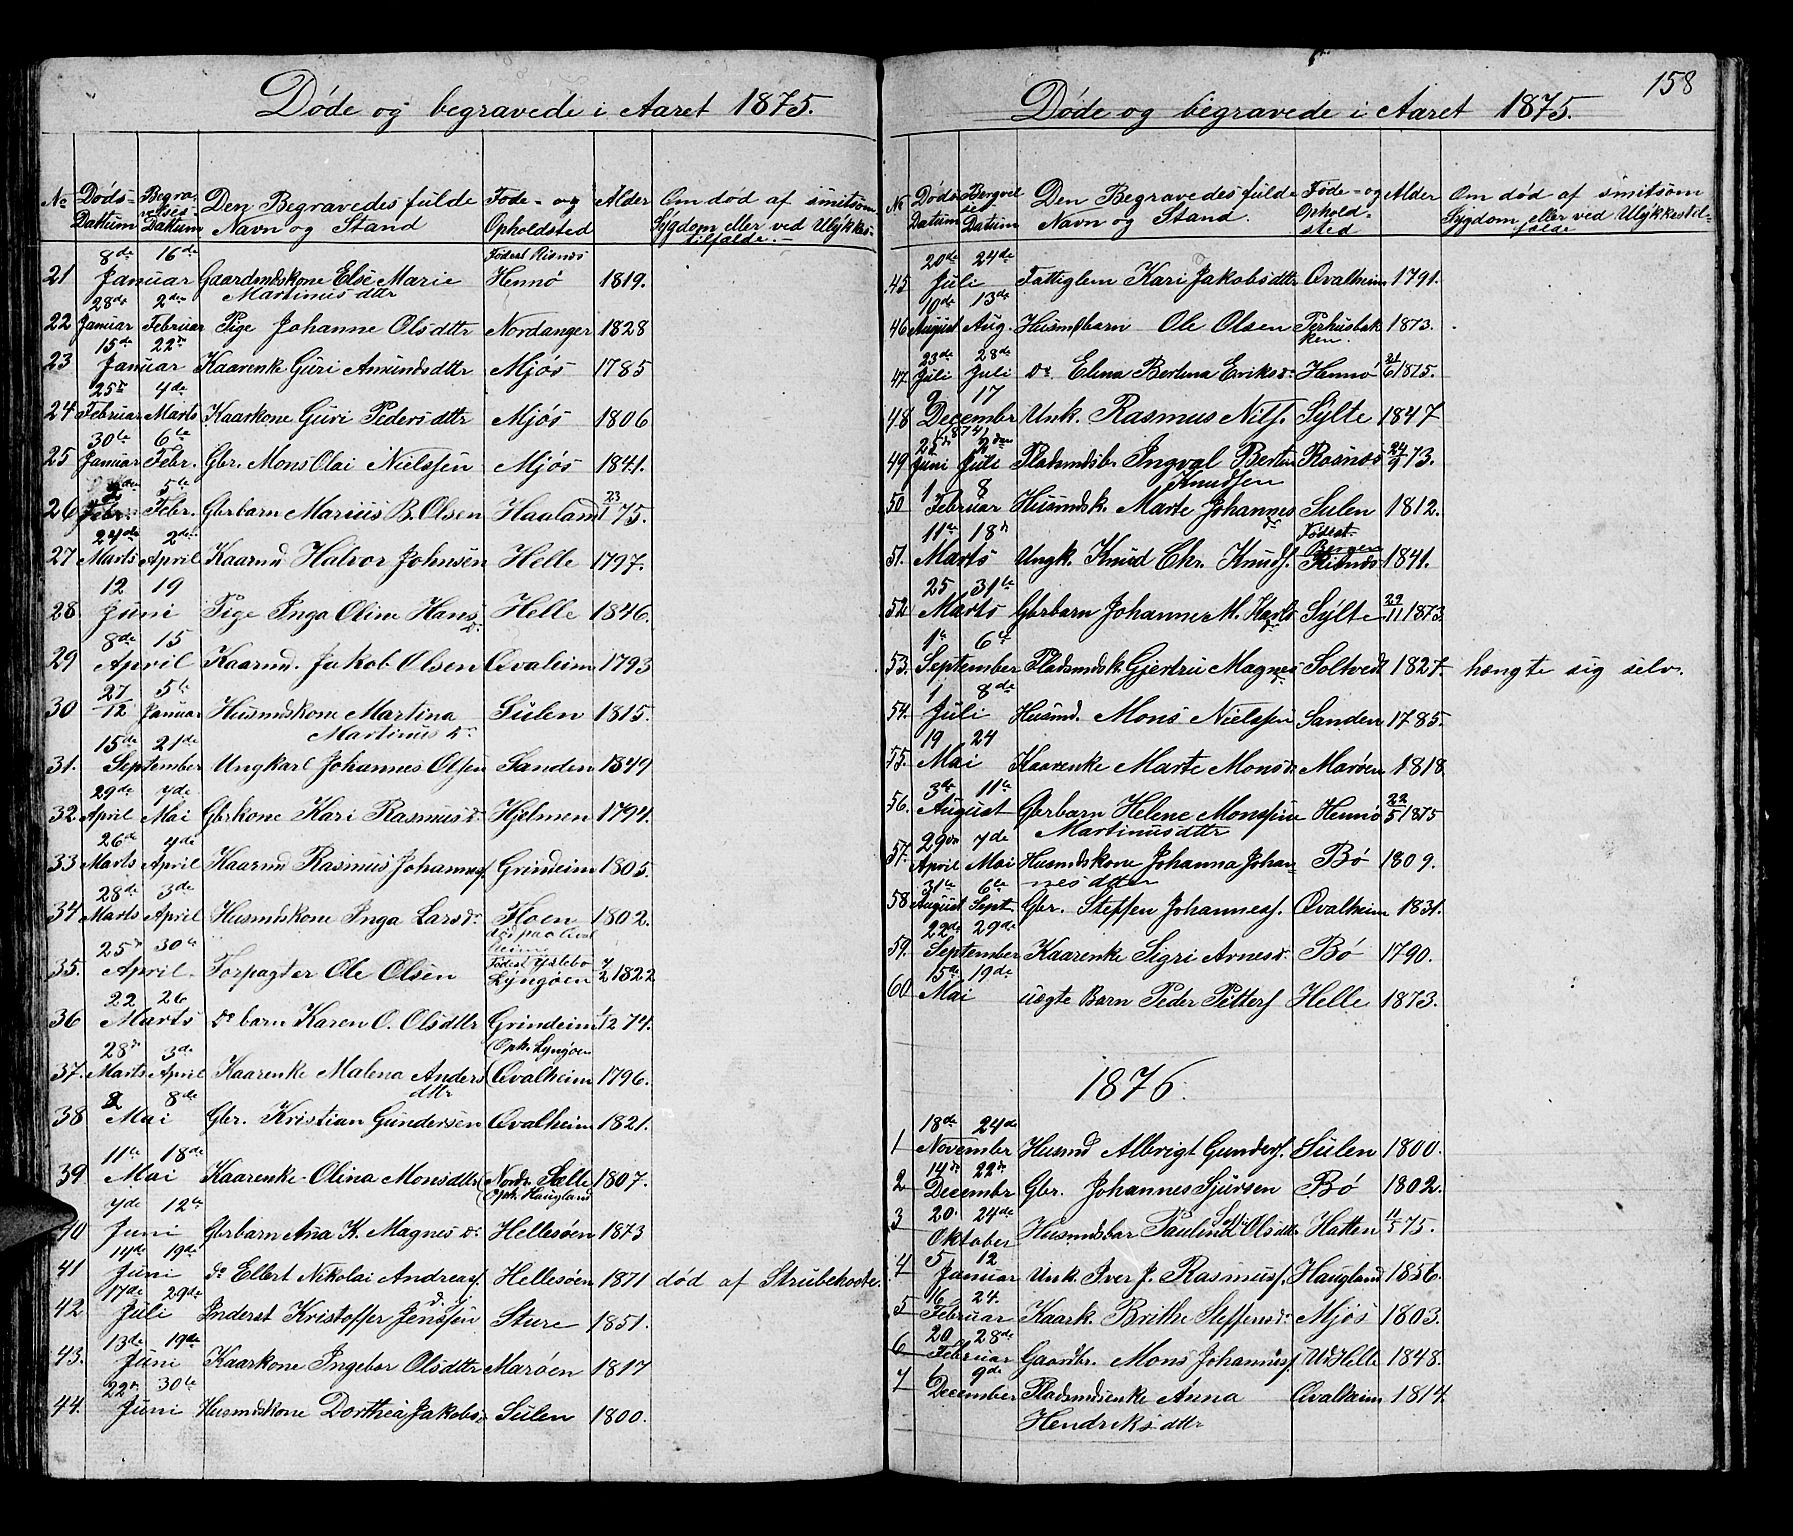 Døde og begravede i Aaret 1875.
No Døds-Dattum Begravelses-Dattum Den Begravedes fulde Navn og Stand Føde- og Opholdsted Alder Om død af smitsom Sygdom eller ved Ulykkestilfælde.-
21 8de 16de Januar Gaardmdskone Else Marie Martinusdttr Fødest Risnæs Hennø 1819.
22 28de Januar 2den Februar Pige Johanne Olsdttr Nordanger 1828
23 15de 22n Januar Kaarenke Guri Amundsdttr Mjøs 1785
24 25n Februar 4de Marts Kaarkone Guri Pedersdttr Mjøs 1806
25 30te Januar 6te Febr. Gbr. Mons Olai Nielssen Mjøs 1841.
26 Febr. 5te Febr. Gbrbarn Marius B. Olsen Haaland 23/1 75.
27 24de Marts 2den April Kaarmd Halvor Johnsen Helle 1797.
28 12 19 Juni Pige Inga Oline Hansd. Helle 1846.
29 8de 15 April Kaarmd. Jakob Olsen Qvaleim 1793
30 27/12 5te Januar Husmdskone Martina Martinusdr Sulen 1815.
31. 15de 21de September Ungkarl Johannes Olsen Sanden 1849
32 29de April 7de Mai Gbrkone Kari Rasmusd. Hjelmen 1794.
33 26de Marts 4de April Kaarmd Rasmus Johannes. Grindeim 1805.
34 28de Marts 3de April Husmdskone Inga Larsdr Floen 1802.
35. 25n 30te April Forpagter Ole Olsen Lyngøen 7/2 1822
36 22 26 Marts do barn Karen O. Olsdttr Grindeim 1/12 74.
37. 28n Marts 3de April Kaarenke Malena Andersdttr (Oph. Lyngøen Qvalheim 1796.
38 2 8de Mai Gbr. Kristian Gundersen Qvalheim 1821.
39 11te 18de Mai Kaarenke Olina Monsdttr Nordr Sælle (Oph. Haugland 1807.
40 7de 12te Juni Gbrbarn Ana K. Magnesdr Hellesøen 1873
41 14de 19de Juni do Ellert Nikolai Andreas. Hellesøen 1871 død af Strubehoste.
42. 17de 29de Juli Inderst Kristoffer Jenssen Sture 1851.
43. 13de 19de Juni Kaarkone Ingebor Olsdttr Marøen 1817
44. 22n 30te Juni Husmdskone Dorthea Jakobsd. Sulen 1800.
158
Døde og begravede i Aaret 1875.
No Døds Dattum Bergvelse Datum Den Begravedes fulde Navn og Stand. Føde- og Opholdsted Alder Om død af smitsom Sygdom eller ved Ulykkestilfælde
45 20de 24de Juli Fattiglem Kari Jakobsdttr Qvalheim 1791.
46 10de August 13de Aug. Husmdbarn Ole Olsen Perhusbakken. 1873.
47 23de Juli 28de Juli do Elina Bertina Eriksdr Hennø 21/6 1875.
48 9 17 Decembr Unk. Rasmus Nils. Sylte 1847
49 (1874) 25de Juni 2den Juli Pladsmdsbr. Ingval Bertin Knudsen Rosnæs 24/9 73.
50 1 8 Februar Husmdsk. Marte Johannesdr Sulen 1812.
51. 11te 18n Marts Ungk. Knud Chr. Knuds. Fødest. Bergen Risnæs 1841.
52 25 31te Marts Gbrbarn Johanne M. Karlsdr Sylte 29/11 1873.
53. 1te 6te September Pladsmdsk. Gjertru Magnesdr Soltvedt 1827. hængte sig selv.
54. 1 8de Juli Husmd. Mons Nielssen Sanden 1785.
55. 19 24 Mai Kaarenke Marte Monsdr Marøen 1818
56. 3de 11te August Gbrbarn Helene Monssine Martinusdttr Hennø 22/5 1875
57. 29de April 7de Mai Husmdskone Johanna Johannesdtter Bø 1809.
58 31te August 6te Sept. Gbr. Steffen Johannes. Qvalheim 1831.
59. 22de 29de September Kaarenke Sigri Arnesdr Bø 1790.
60 15de 19de Mai uægte Barn Peder Petters Helle 1873.
1876.
1 18de 24de November Husmd Albrigt Gunders. Sulen 1800.
2 14de 22n Decembr Gbr. Johannes Sjursen Bø 1802.
3 20. 24de Oktober Husmdsbar Pauline Olsdttr Hatten 11/5 75.
4 5 12 Januar Unk. Iver J. Rasmus. Haugland 1856.
5 16 24. Februar Kaark. Brithe Steffensdr Mjøs 1803.
6 20 28de Februar Gaardbr. Mons Johannes. Ud Helle 1848.
7 2 9de December Pladsmdsenke Anna Hendriksdttr Qvalheim 1814.